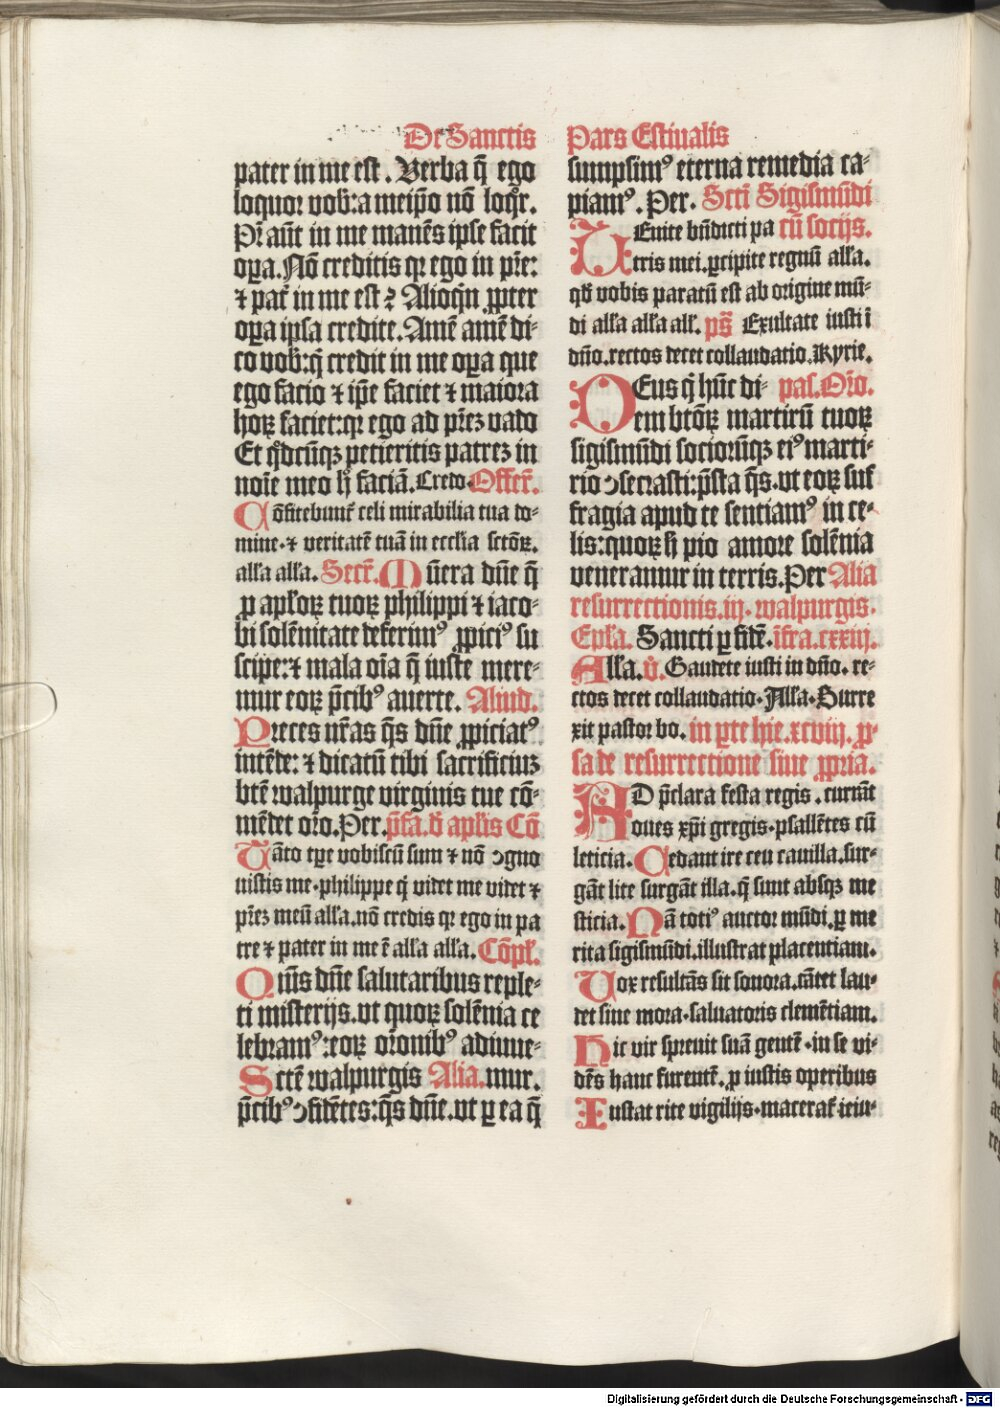 De Sanctis
pater in me est. Verba q̄ ego
loquor vob: a meip̄o nō loq̇r.
Pr̄ aūt in me manēs ipse facit
oꝑa. Nō creditis qꝛ ego in pr̄e:
⁊ pat̄ in me est ⁊ Alioq̇n ꝓpter
oꝑa ipsa credite. Amē amē di-
co vob: q̇ credit in me oꝑa que
ego facio ⁊ ip̄e faciet ⁊ maiora
hoꝝ faciet: qꝛ ego ad pr̄eꝫ vado
Et q̇dcūqꝫ petieritis patreꝫ in
noīe meo h̄ faciā. Credo. Offer̄.
Cōfitebunt̄ celi mirabilia tua do-
mine. ⁊ veritatē tuā in eccl̄ia sctōꝝ.
all̄a all̄a. Secr̄. Mūera dn̄e q̄
ꝓ apl̄oꝝ tuoꝝ philippi ⁊ iaco-
bi solēnitate deferimꝰ ꝓpiciꝰ su
scipe: ⁊ mala oīa q̄ iuste mere-
mur eoꝝ p̄cibꝰ auerte. Aliud.
Preces nr̄as q̄s dn̄e ꝓpiciatꝰ
intēde: ⁊ dicatū tibi sacrificiuꝫ
btē walpurge virginis tue cō-
mēdet or̄o. Per. p̄fa. d̄ apl̄is Cō
Tāto tꝑe vobiscū sum ⁊ nō ↄgno
uistis me. philippe q̇ videt me videt ⁊
pr̄eꝫ meū all̄a. nō credis qꝛ ego in pa
tre ⁊ pater in me ē all̄a all̄a. Cōpl̄.
Quīs dn̄e salutaribus reple-
ti misterijs. vt quoꝝ solēnia ce
lebramꝰ: eoꝝ or̄onibꝰ adiuue-
Sctē walpurgis Alia. mur.
p̄cibꝰ ↄfidētes: q̄s dn̄e. vt ꝑ ea q̄
Pars Estiualis
sumpsimꝰ eterna remedia ca-
piamꝰ. Per. Scti Sigismūdi
Uenite bn̄dicti pa cū socijs.
tris mei. ꝑcipite regnū all̄a.
qd̄ vobis paratū est ab origine mū-
di all̄a all̄a all̄. ps̄ Exultate iusti ī
dn̄o. rectos decet collaudatio. Kyrie.
DEus q̇ hūc di- pas. Or̄o.
em btōꝝ martirū tuoꝝ
sigismūdi sociorūqꝫ eiꝰ marti-
rio ↄsecrasti: p̄sta q̄s. vt eoꝝ suf
fragia apud te sentiamꝰ in ce-
lis: quoꝝ h̄ pio amore solēnia
veneramur in terris. Per Alia
resurrectionis. iij. walpurgis.
Epl̄a. Sancti ꝑ fidē. īfra. cxxiij.
All̄a. v̄. Gaudete iusti in dn̄o. re-
ctos decet collaudatio. All̄a. Surre
xit pastor bo. in ꝑte hie. xcviij. ꝓ-
sa de resurrectione siue ꝓpria.
AD p̄clara festa regis. currāt
oues xp̄i gregis. psallētes cū
leticia. Cedant ire ceu cauilla. sur-
gāt lite surgāt illa. q̄ sunt absqꝫ me
sticia. Nā totiꝰ auctor mūdi. ꝑ me
rita sigismūdi. illustrat placentiam.
Vox resultās sit sonora. cātet lau-
det sine mora. saluatoris clemētiam.
Hic vir spreuit suā gentē. in se vi-
dēs hanc furentē. ꝓ iustis operibus
Instat rite vigilijs. macerat̄ ieiu-
Digitalisierung gefördert durch die Deutsche Forschungsgemeinschaft - DFG